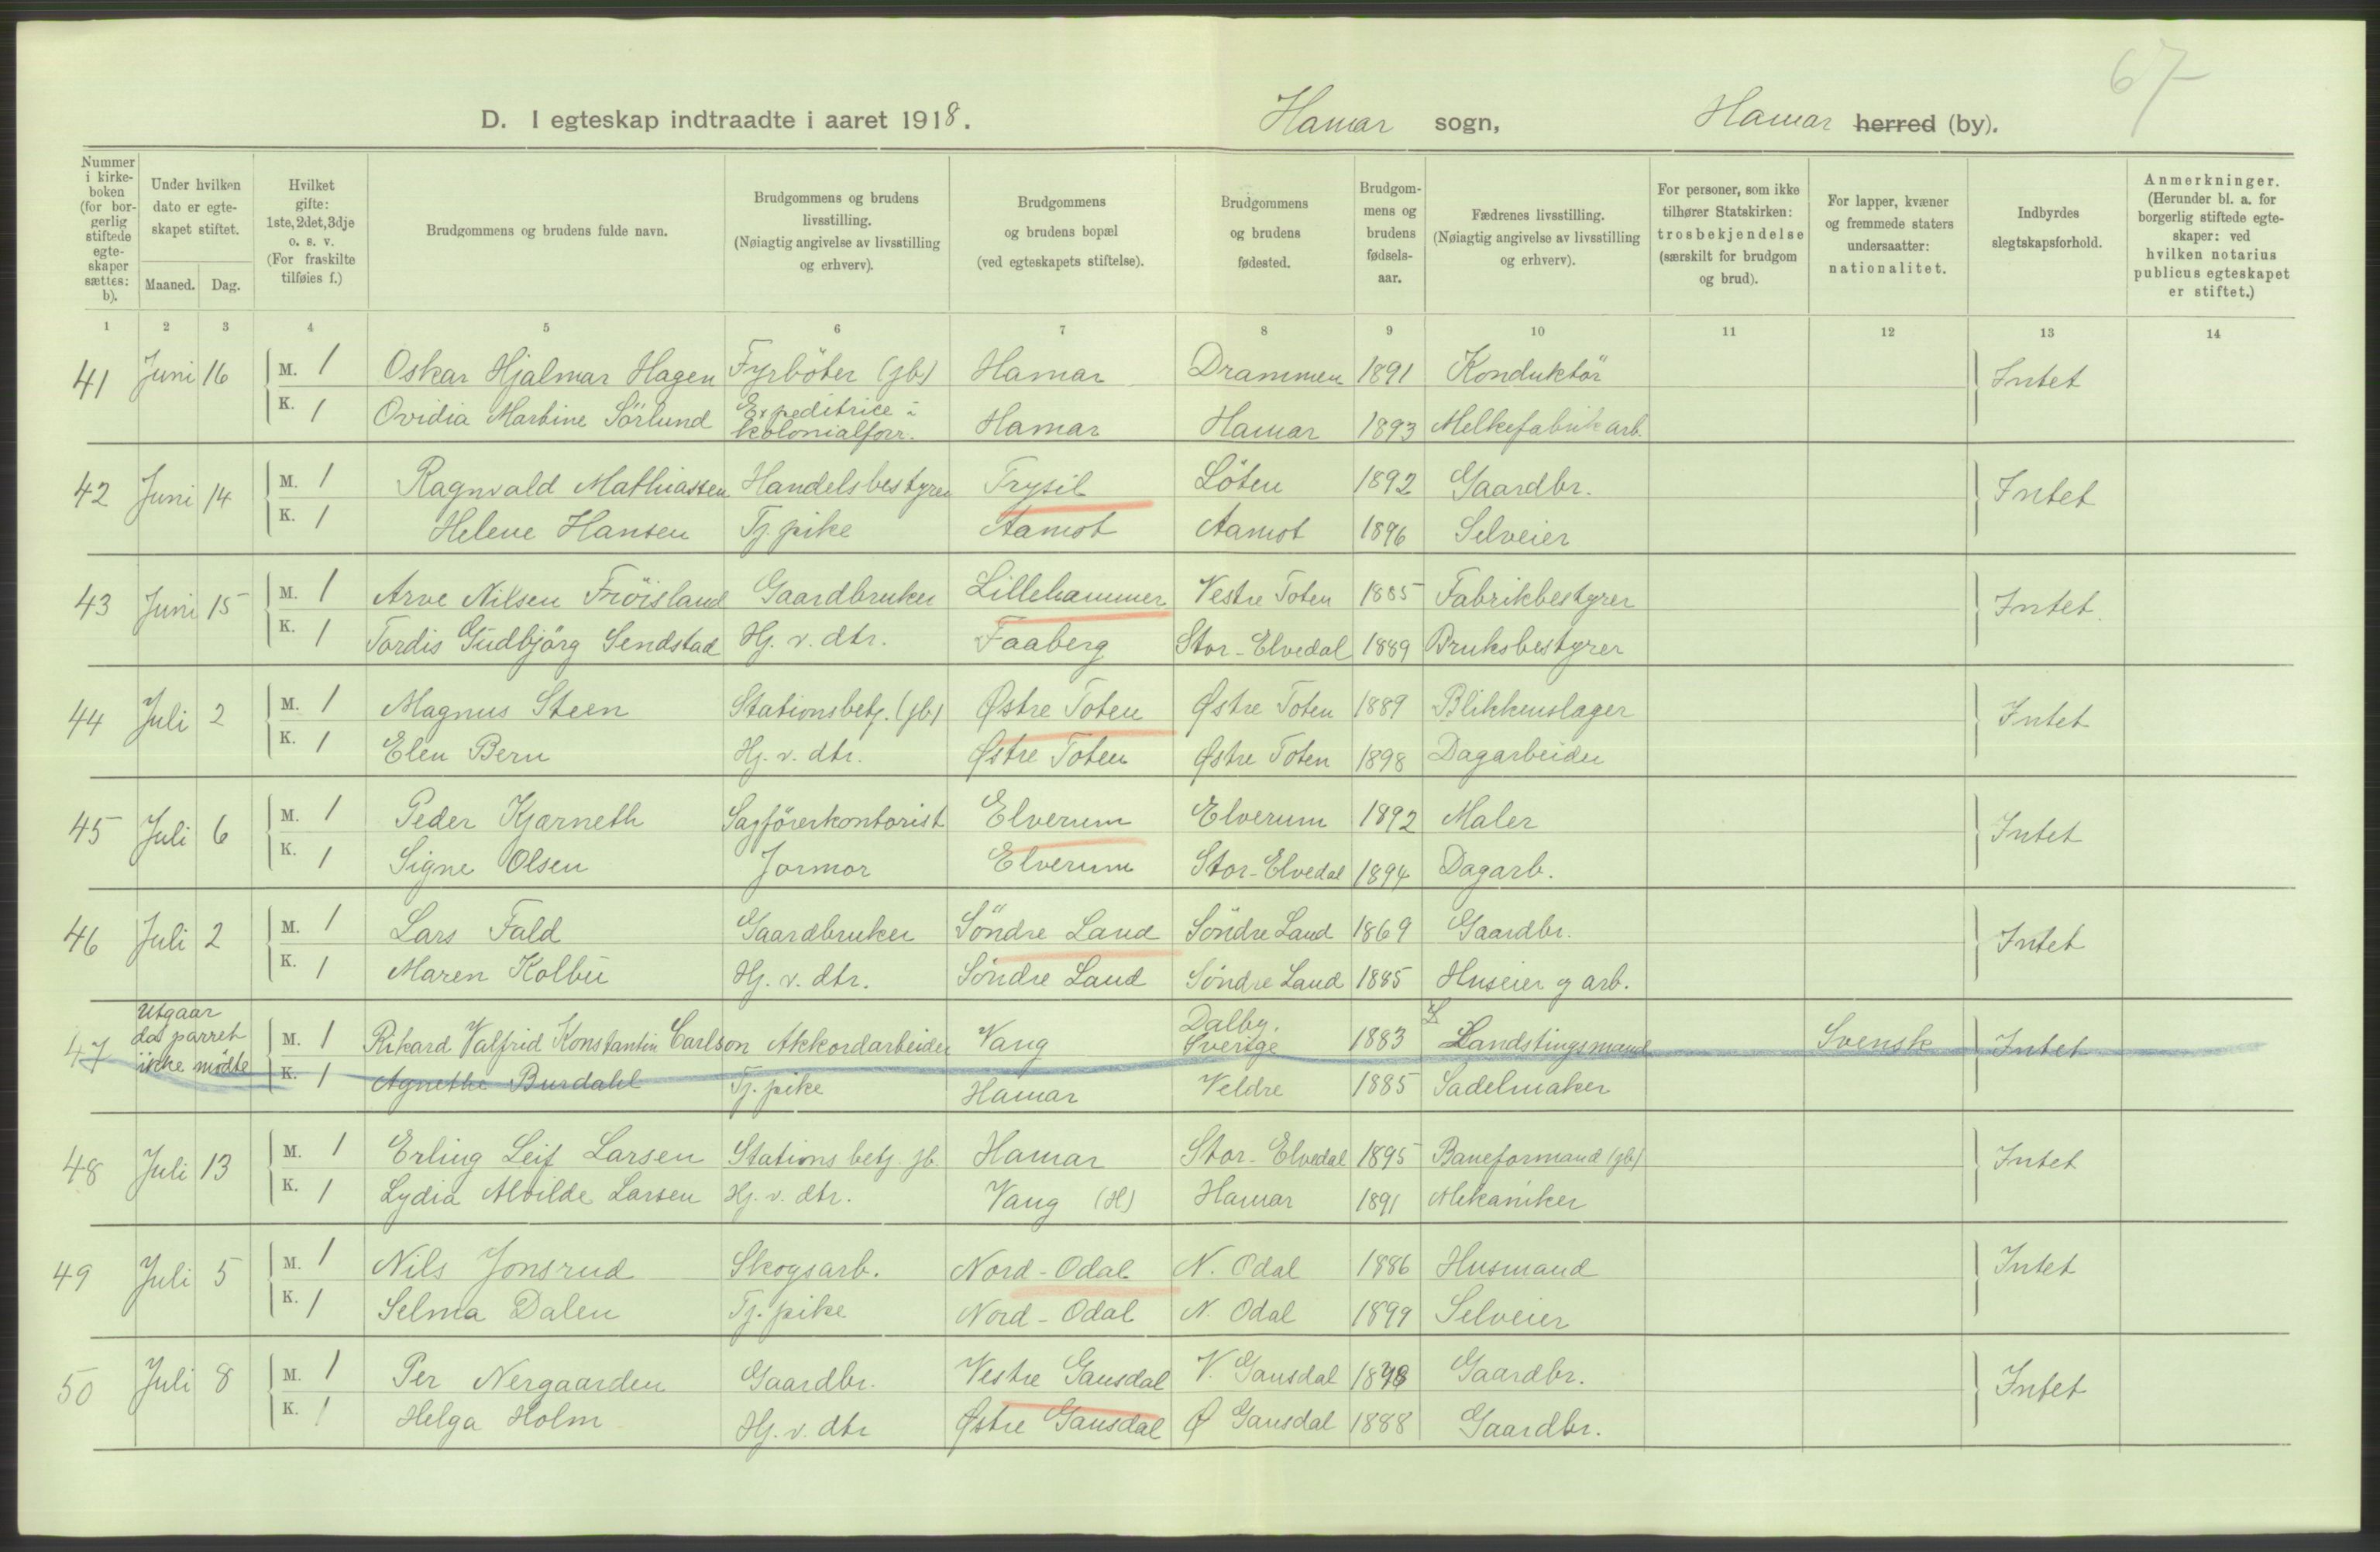 67
D. I egteskap indtraadte i aaret 1918. Hamar sogn, Hamar herred (by).
Nummer i kirke-boken (for bor-gerlig stiftede egte-skaper sættes: b).
Under hvilken dato er egte-skapet stiftet.
Maaned. Dag.
Hvilket gifte: 1ste, 2det, 3dje o. s. v. (For fraskilte tilføies f.)
Brudgommens og brudens fulde navn.
Brudgommens og brudens livsstilling. (Nøiagtig angivelse av livsstilling og erhverv).
Brudgommens og brudens bopæl (ved egteskapets stiftelse).
Brudgommens og brudens fødested.
Brudgom-mens og brudens fødsels-aar.
Fædrenes livsstilling. (Nøiagtig angivelse av livsstilling og erhverv).
For personer, som ikke tilhører Statskirken: trosbekjendelse (særskilt for brudgom og brud).
For lapper, kvæner og fremmede staters undersaatter: nationalitet.
Indbyrdes slegtskapsforhold.
Anmerkninger. (Herunder bl. a. for borgerlig stiftede egte-skaper: ved hvilken notarius publicus egteskapet er stiftet.)
1 2 3 4 5 6 7 8 9 10 11 12 13 14
41 Juni 16 M. 1 Oskar Hjalmar Hagen Fyrböter (jb) Hamar Drammen 1891 Konduktör Intet
K. 1 Ovidia Martine Sörlund Expeditrice i kolonialforr. Hamar Hamar 1893 Melkefabrikarb.
42 Juni 14 M. 1 Ragnvald Mathiassen Handelsbestyrer Trysil Löten 1892 Gaardbr. Intet
K. 1 Helene Hansen Tj. pike Aamot Aamot 1896 Selveier
43 Juni 15 M. 1 Arve Nilsen Fröisland Gaardbruker Lillehammer Vestre Toten 1885 Fabrikbestyrer Intet.
K. 1 Tordis Gudbjörg Sendstad Hj. v. dtr. Faaberg Stor-Elvedal 1889 Bruksbestyrer
44 Juli 2 M. 1 Magnus Steen Stationsbetj. (jb) Østre Toten Østre Toten 1889 Blikkenslager Intet
K. 1 Elen Bern Hj. v. dtr. Østre Toten Østre Toten 1898 Dagarbeider
45 Juli 6 M. 1 Peder Kjarneth Sagförerkontorist Elverum Elverum 1892 Maler Intet
K. 1 Signe Olsen Jormor Elverum Stor-Elvedal 1894 Dagarb.
46 Juli 2 M. 1 Lars Fald Gaardbruker Söndre Land Söndre Land 1869 Gaardbr. Intet
K. 1 Maren Kolbu Hj. v. dtr. Söndre Land Söndre Land 1885 Huseier og arb.
47 Utgaar da parret ikke mödte M. 1 Rikard Valfrid Konstantin Carlson Akkordarbeider Vang Dalby. Sverige 1883 Landstingsmand Svensk Intet
K. 1 Agnethe Burdahl Tj. pike Hamar Veldre 1885 Sadelmaker
48 Juli 13 M. 1 Erling Leif Larsen Stationsbetj. jb. Hamar Stor-Elvedal 1895 Baneformand (jb) Intet
K. 1 Lydia Alvilde Larsen Hj. v. dtr. Vang (H) Hamar 1891 Mekaniker
49 Juli 5 M. 1 Nils Jonsrud Skogsarb. Nord-Odal N. Odal 1886 Husmand Intet
K. 1 Selma Dalen Tj. pike Nord-Odal N. Odal 1899 Selveier
50 Juli 8 M. 1 Per Nergaarden Gaardbr. Vestre Gausdal V. Gausdal Gaardbr. Intet
K. 1 Helga Holm Hj. v. dtr Østre Gausdal Ø Gausdal 1888 Gaardbr.